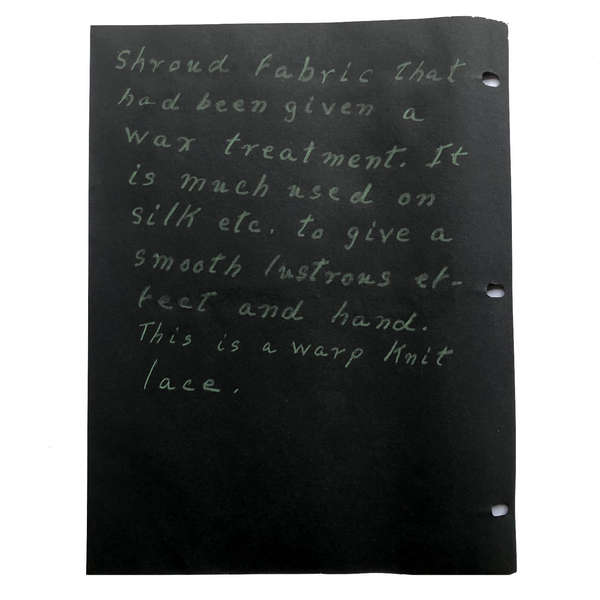 Shroud fabric that
had been given a
wax treatment. It
is much used on
silk etc. to give a
smooth lustrous ef-
fect and hand.
This is a warp knit
lace.